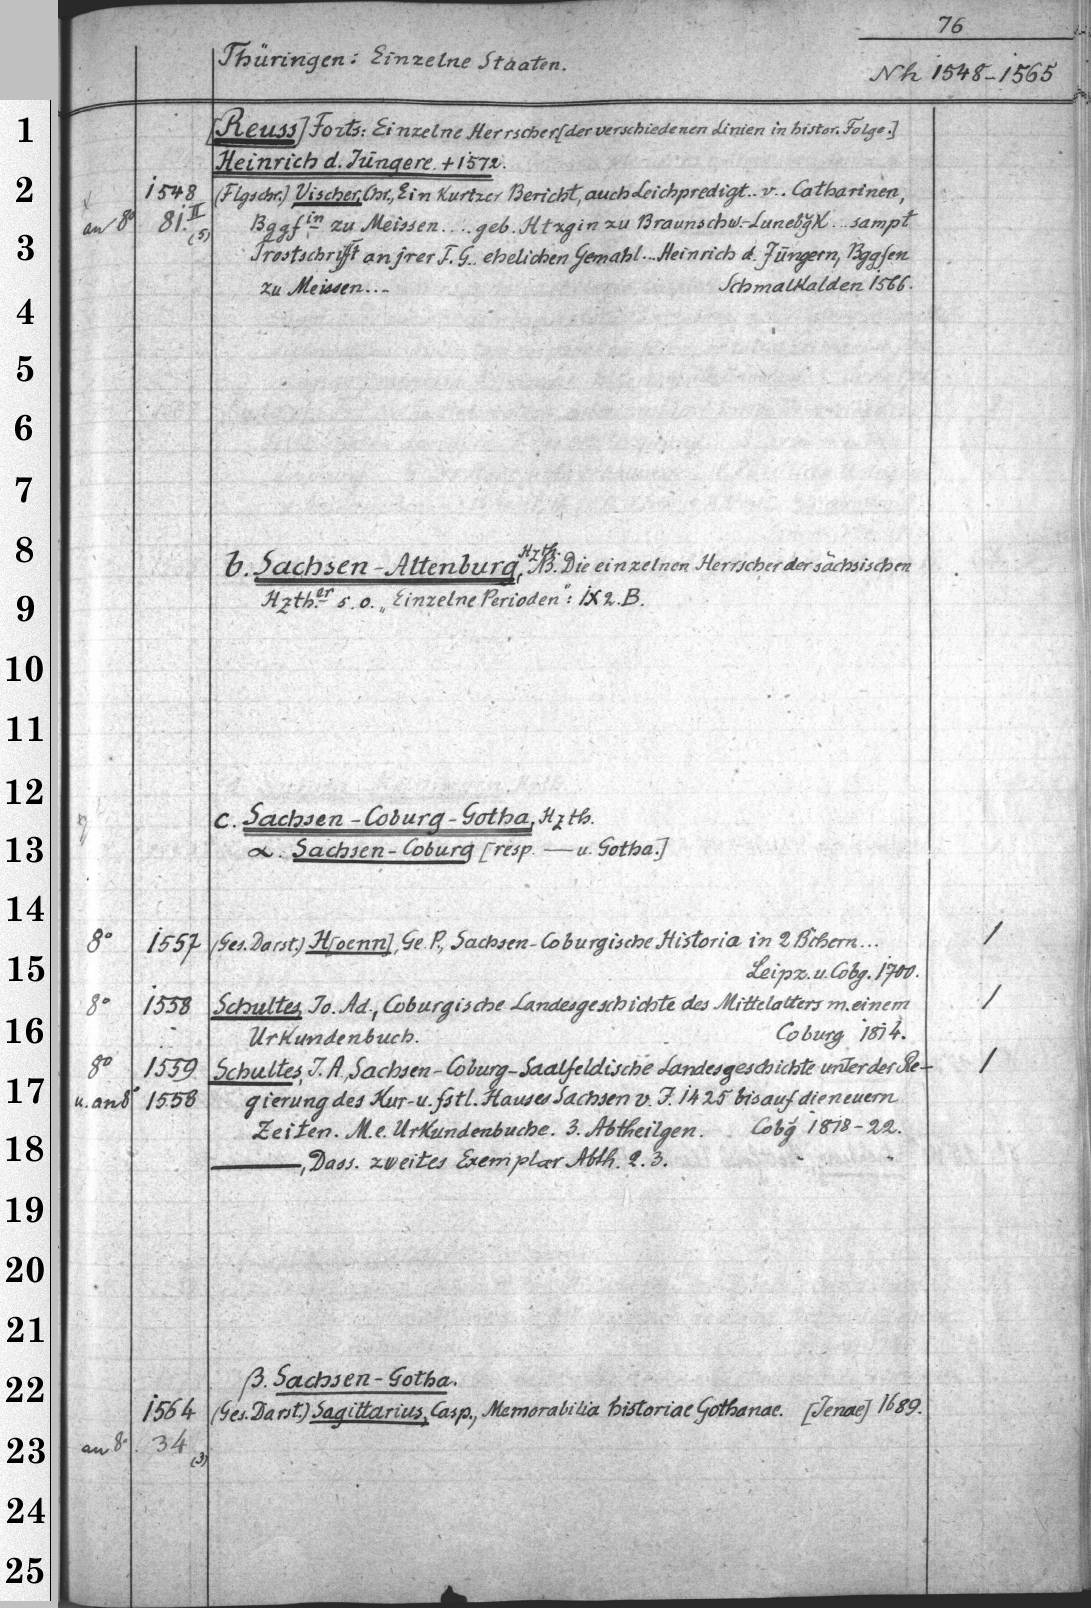 76
Thüringen: Einzelne Staaten.
Nh 1548-1565
[Reuss] Forts: Einzelne Herrscher [der verschiedenen Linien in histor. Folge.]
Heinrich d. Jüngere +1572.
1548 (Flgschr.) Vischer, Chr., Ein Kurtzer Bericht, auch Leichpredigt.. v.. Catharinen,
an 8° 81.II (5) Bggfin zu Meissen.... geb. Htzgin zu Braunschw-Lunebgk... sampt
Trostschrifft an jrer F. G.. ehelichen Gemahl... Heinrich d. Jüngern, Bggfen
zu Meissen... Schmalkalden 1566.
b. Sachsen-Altenburg, Hzth. NB. Die einzelnen Herrscher der sächsischen
Hzth.er s. o. „Einzelne Perioden": IX 2. B.
c. Sachsen-Coburg-Gotha, Hzth.
α. Sachsen-Coburg [resp. — u. Gotha.]
8° 1557 (Ges. Darst.) H[oenn], Ge. P., Sachsen-Coburgische Historia in 2 Bchern... /
Leipz. u. Cobg. 1700.
8° 1558 Schultes, Jo. Ad., Coburgische Landesgeschichte des Mittelalters m. einem /
Urkundenbuch. Coburg 1814.
8° 1559 Schultes, J. A., Sachsen-Coburg-Saalfeldische Landesgeschichte unter der Re- /
u. an 8° 1558 gierung des Kur- u. fstl. Hauses Sachsen v. J. 1425 bis auf die neuern
Zeiten. M. e. Urkundenbuche. 3. Abtheilgen. Cobg 1818-22.
—, Dass. zweites Exemplar Abth. 2. 3.
β. Sachsen-Gotha.
1564 (Ges. Darst.) Sagittarius, Casp., Memorabilia historiae Gothanae. [Jenae] 1689.
an 8° 34 (3)
1
2
3
4
5
6
7
8
9
10
11
12
13
14
15
16
17
18
19
20
21
22
23
24
25